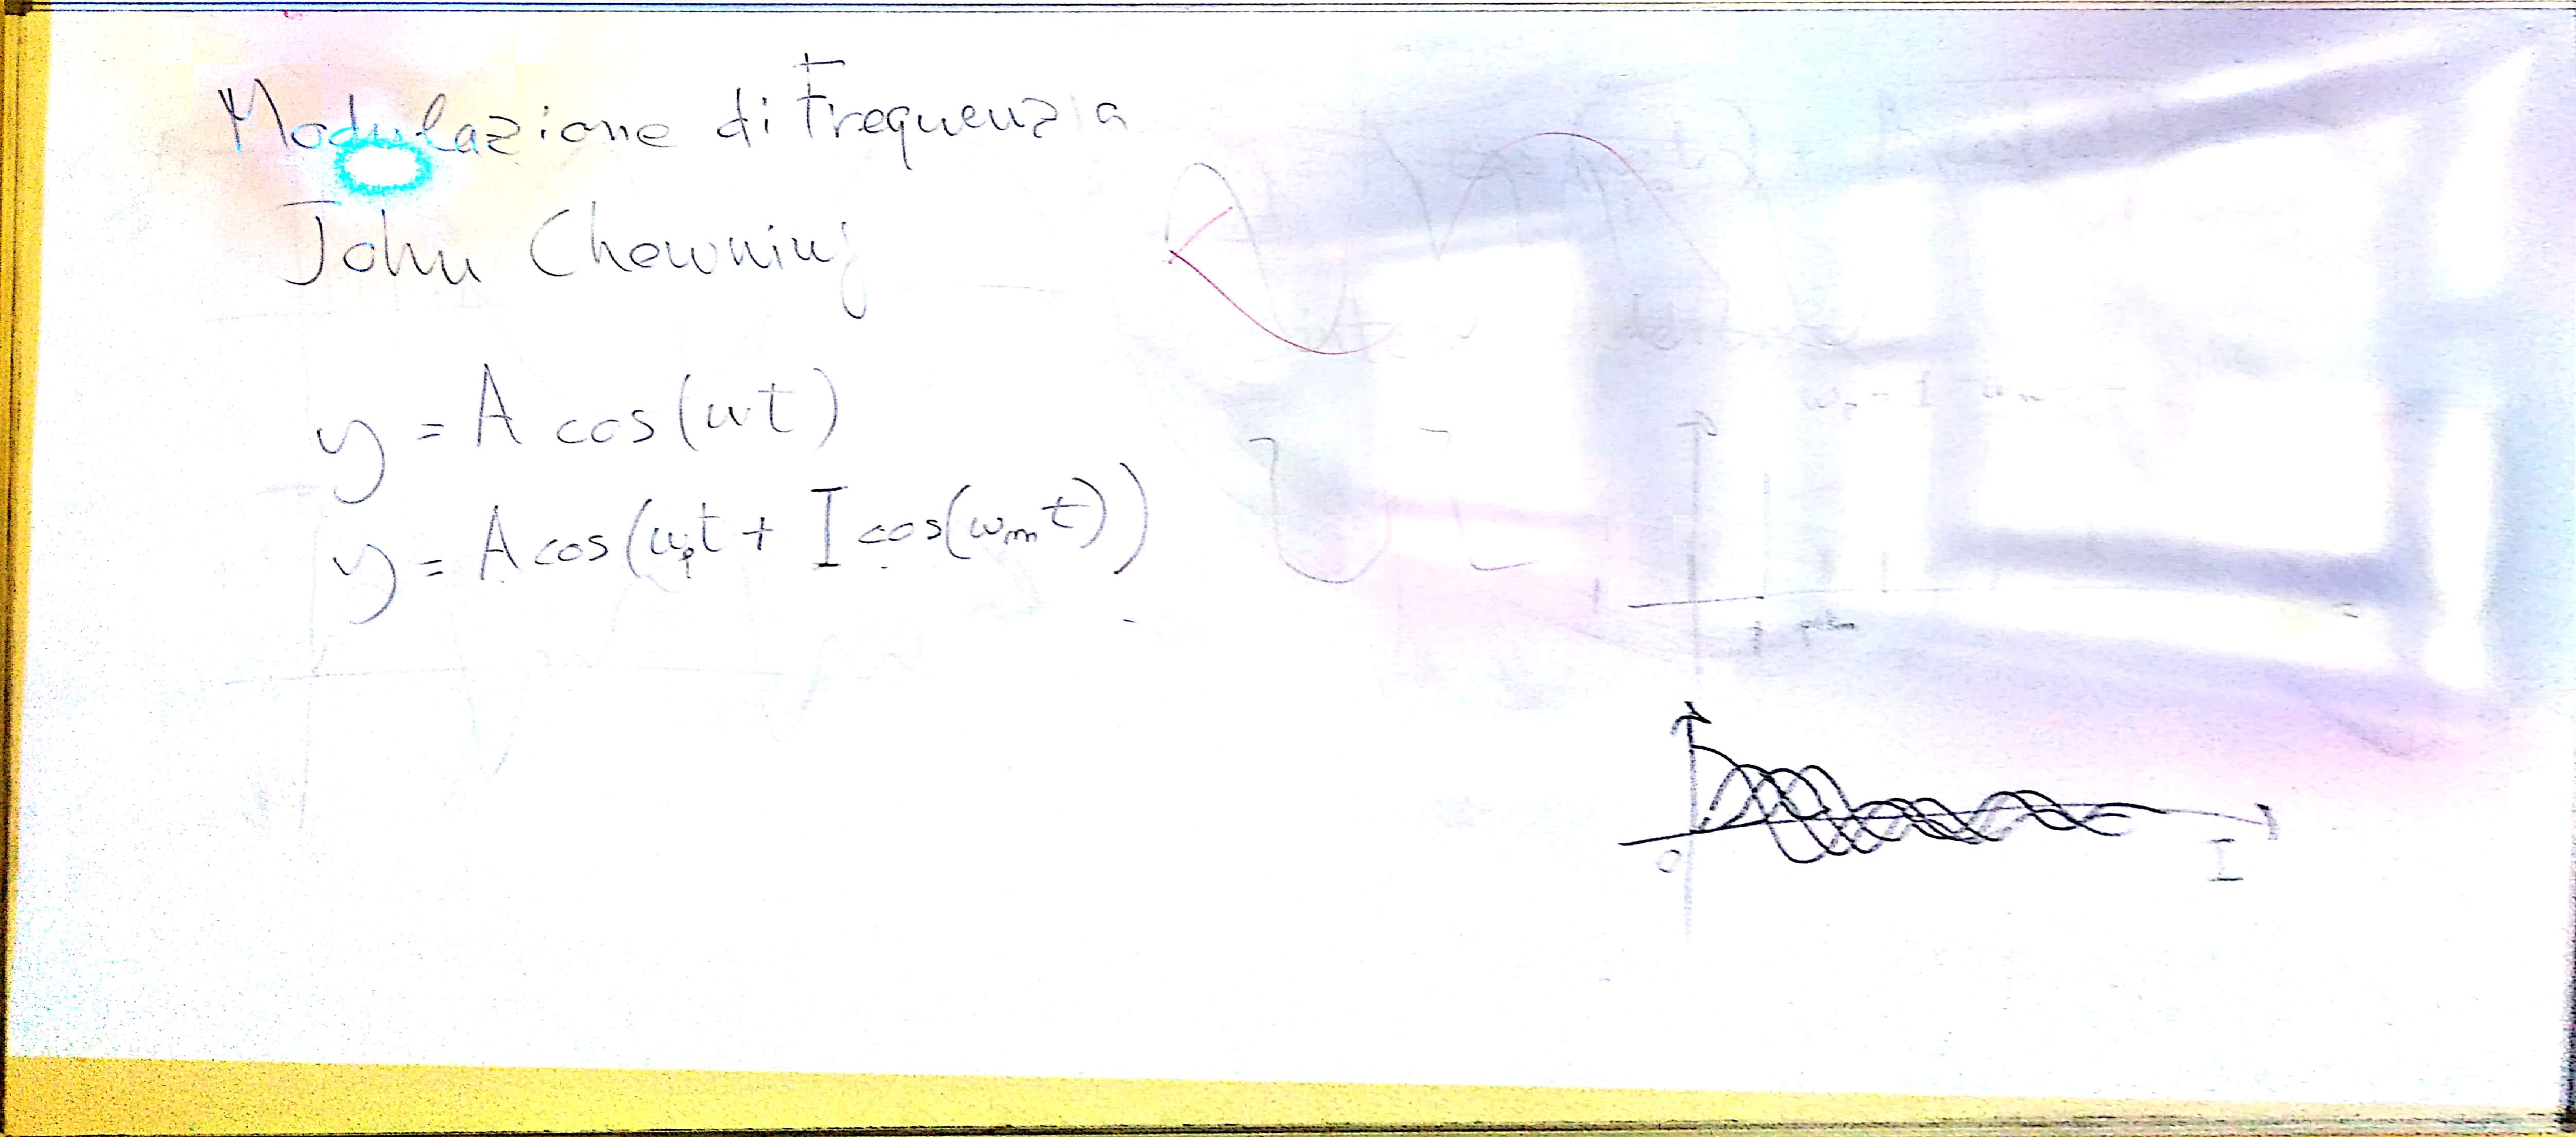 Modulazione di Frequenzia
John Chowning
y = A cos(ωt)
y = A cos(ωpt + I cos(ωmt))
0
I